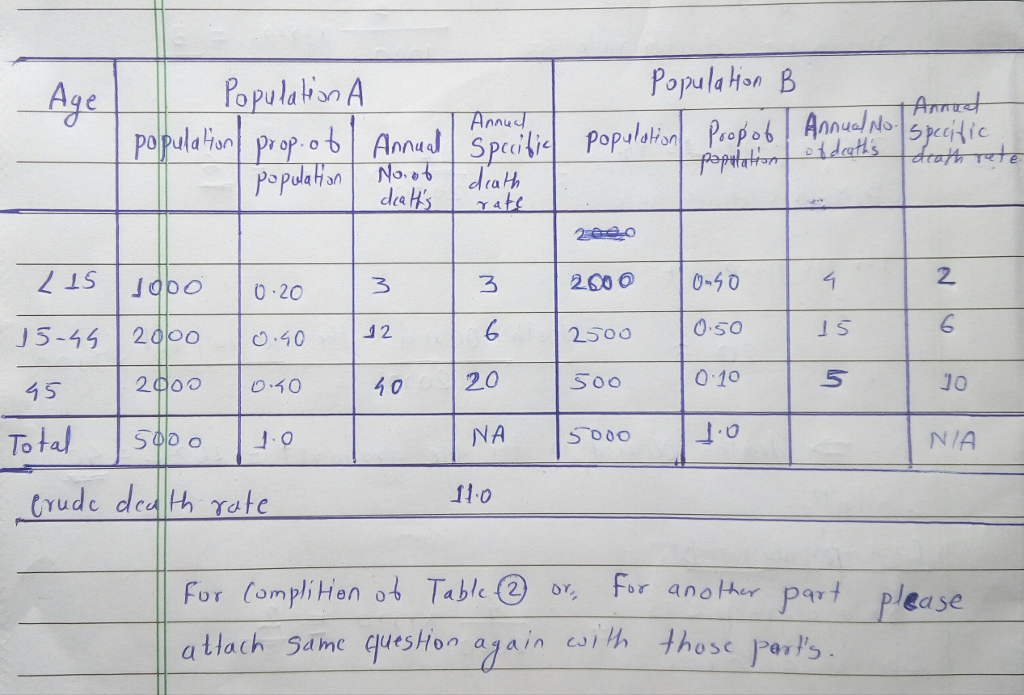 Age Population A Population B
population prop. of population Annual No. of death's Annual Specific death rate population Prop of population Annual No. of death's Annual Specific death rate
< 15 1000 0.20 3 3 2000 0.40 4 2
15-44 2000 0.40 12 6 2500 0.50 15 6
45 2000 0.40 40 20 500 0.10 5 10
Total 5000 1.0 NA 5000 1.0 N/A
Crude death rate 11.0
For Complition of Table 2 or, For another part please
attach same question again with those part's.